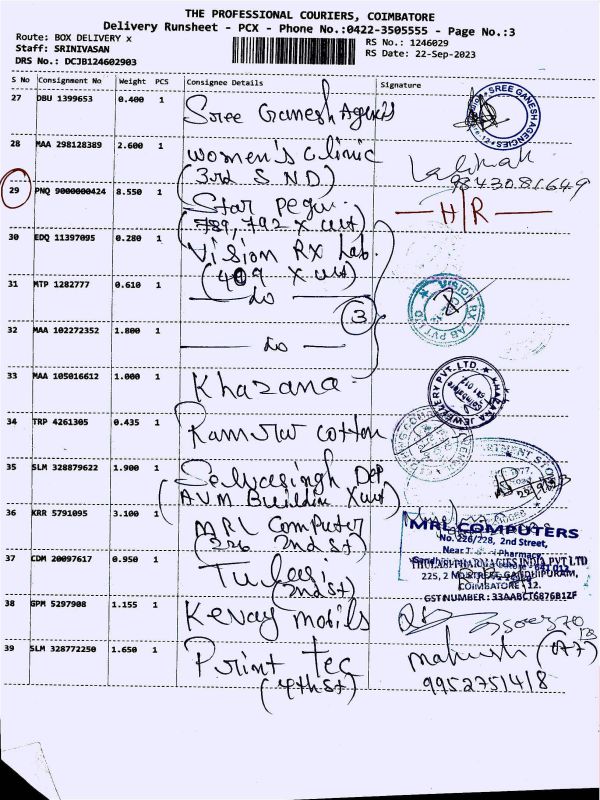 THE PROFESSIONAL COURIERS, COIMBATORE
Delivery Runsheet - PCX - Phone No.:0422-3505555 - Page No.:3
Route: BOX DELIVERY x
RS No.: 1246029
Staff: SRINIVASAN
RS Date: 22-Sep-2023
DRS No.: DCJB124602903
S No Consignment No Weight PCS Consignee Details Signature
27 DBU 1399653 0.400 1 Sree Ganesh Agencies
SREE GANESH AGENCIES
28 MAA 298128389 2.600 1 women's clinic
(3rd S N.D)
29 PNQ 9000000424 8.550 1 Star
(789, 792 X cut)
H/R
30 EDQ 11397095 0.280 1 Vision Rx Lab.
(409 X cut)
31 MTP 1282777 0.610 1 — do —
3
VISION RX LAB PVT LTD
32 MAA 102272352 1.800 1 — do —
33 MAA 105016612 1.000 1 Khazana
KHAZANA JEWELLERY PVT. LTD.
34 TRP 4261305 0.435 1 cotton
35 SLM 328879622 1.900 1 Dep
(A.V.M X cut)
36 KRR 5791095 3.100 1 MRL Computer
(226 2nd St)
MRL COMPUTERS
No. 226/228, 2nd Street,
37 CDM 20097617 0.950 1 Tulasi
(2nd St)
THULASI PHARMACIES INDIA PVT LTD
GANDHIPURAM,
COIMBATORE - 12.
GST NUMBER : 33AABCT6876B1ZF
38 GPM 5297908 1.155 1 Kevay mobils
39 SLM 328772250 1.650 1 Print Tec
(4th St)
9952751418